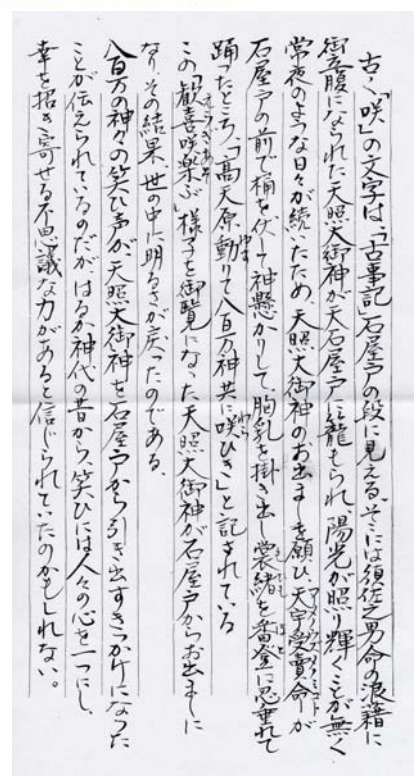 古く「咲」の文字は、「古事記」石屋戸の段に見える。そこには須佐之男命の浪藉に
御立腹になられた天照大御神が天石屋戸に籠もられ、陽光が照り輝くことが無く
常夜のような日々が続いたため、天照大御神のお出ましを願ひ、天宇受賣命が
石屋戸の前で桶を伏して神懸かりして、胸乳を掛き出し裳緒を番登に忍垂れて
踊ったところ、「高天原動りて八百万神共に咲ひき」と記されている
この「歓喜咲楽ぶ」様子を御覧になった天照大御神が石屋戸からお出ましに
なり、その結果、世の中に明るさが戻ったのである。
八百万の神々の笑ひ声が、天照大御神を石屋戸から引き出すきっかけになった
ことが伝えられているのだが、はるか神代の昔から笑ひには人々の心を一つにし、
幸を招き寄せる不思議な力があると信じられていたのかもしれない。